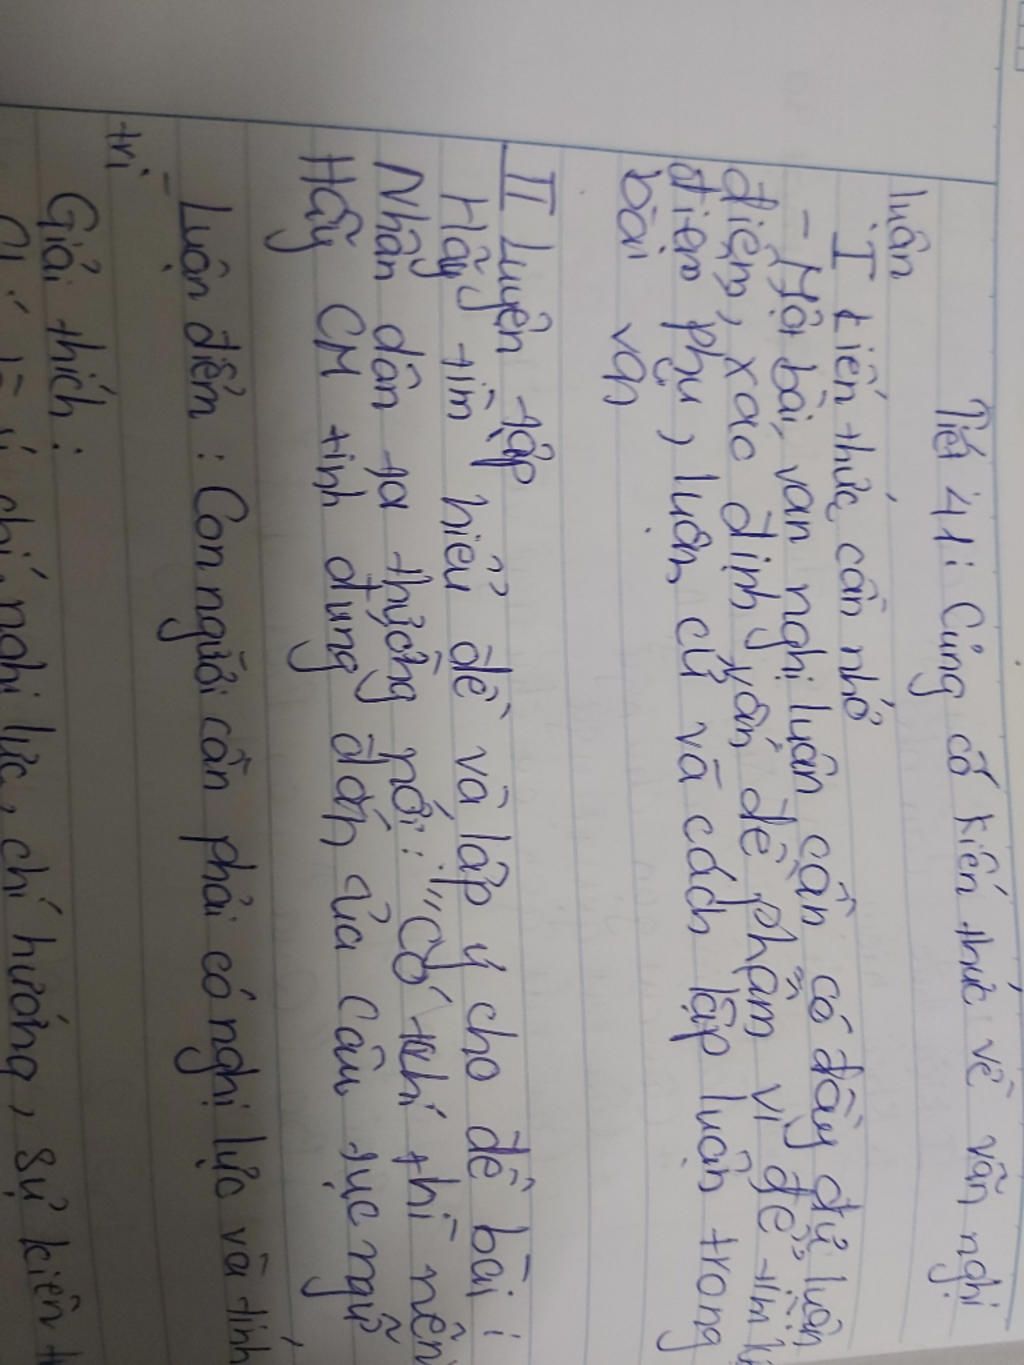 Tiết 41: Củng cố kiến thức về văn nghị
luận
I kiến thức cần nhớ
- Một bài văn nghị luận cần có đầy đủ luận
điểm, xác định vấn đề phạm vi để tìm
điểm phụ, luận cứ và cách lập luận trong
bài văn
II Luyện tập
Hãy tìm hiểu đề và lập ý cho đề bài:
Nhân dân ta thường nói: "Có chí thì nên
Hãy CM tính đúng đắn của câu tục ngữ
- Luận điểm: Con người cần phải có nghị lực và tinh
trí
Giải thích:
chí, nghị lực, chí hướng, sự kiên